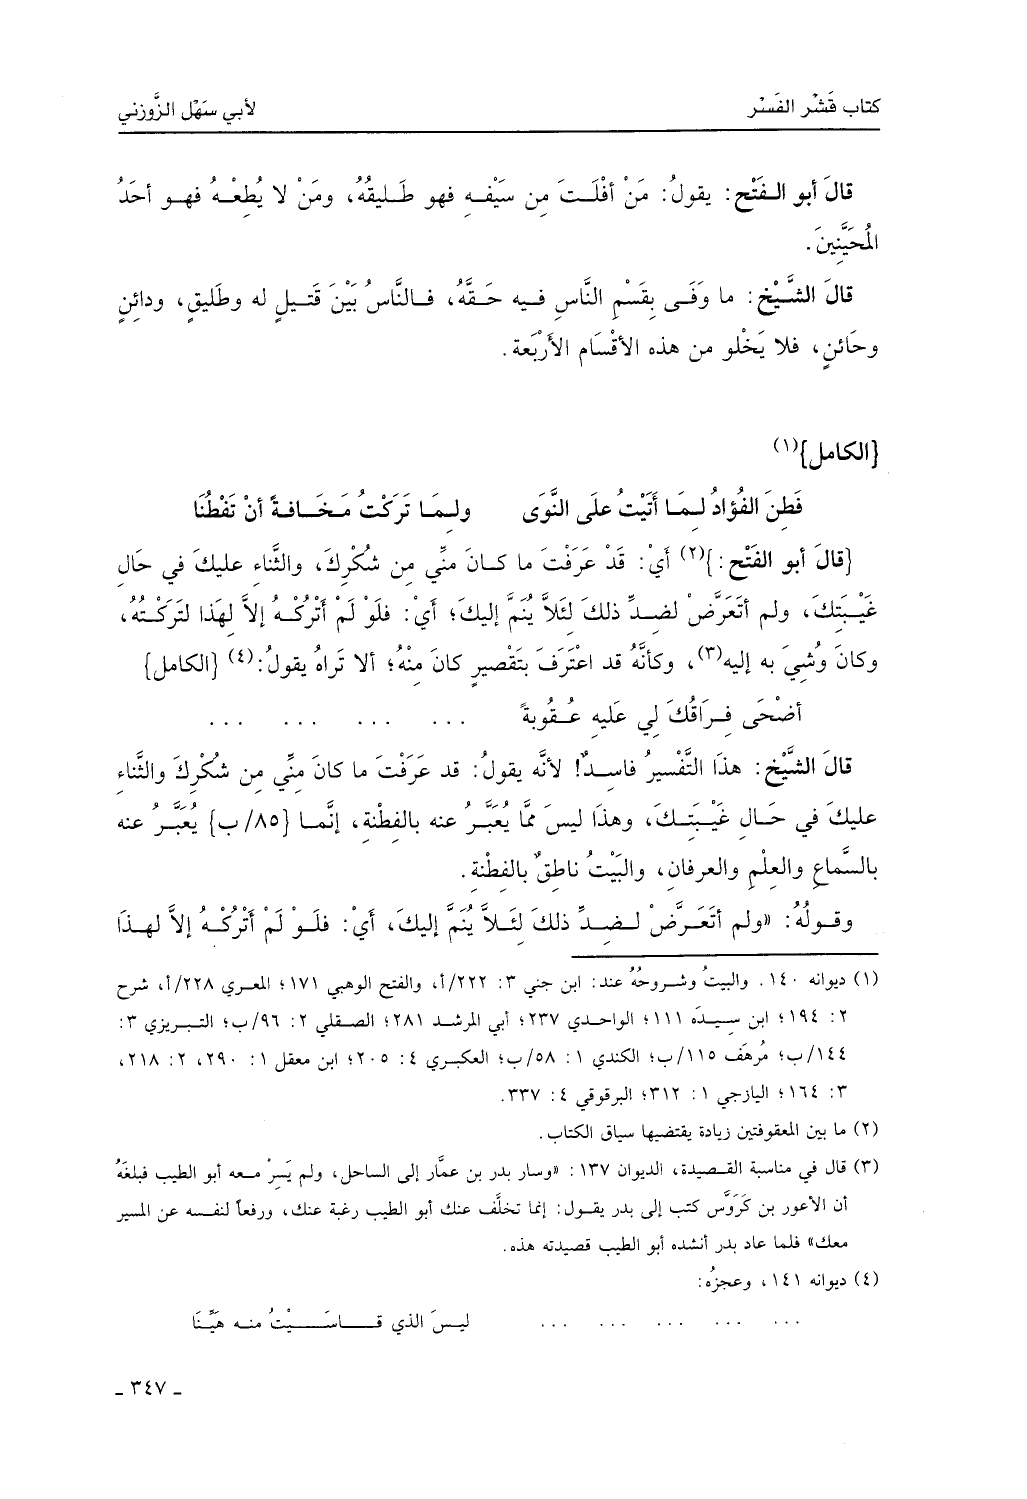 كتاب قَشْر الفَسْر لأبي سَهْل الزَّوزني
قالَ أبو الفَتْح: يقولُ: مَنْ أفْلَتَ مِن سَيْفِهِ فهو طَليقُهُ، ومَنْ لا يُطِعْهُ فهو أحَدُ
المُحَيَّنِينَ.
قالَ الشَّيْخ: ما وَفَى بِقَسْمِ النَّاسِ فيه حَقَّهُ، فالنَّاسُ بَيْنَ قَتيلٍ له وطَليقٍ، ودائنٍ
وحَائنٍ، فلا يَخْلو من هذه الأقْسَام الأرْبَعة.
{الكامل}(١)
فَطِنَ الفُؤادُ لِمَا أتَيْتُ علَى النَّوَى ولِمَا تَرَكْتُ مَخَافةً أنْ تَفْطُنَا
{قالَ أبو الفَتْح:}(٢) أيْ: قَدْ عَرَفْتَ ما كانَ منِّي مِن شُكْرِكَ، والثَّناءِ عليكَ في حَالِ
غَيْبَتِكَ، ولم أتَعَرَّضْ لضدِّ ذلكَ لئَلاَّ يُنَمَّ إليكَ؛ أيْ: فلَوْ لَمْ أتْرُكْهُ إلاَّ لهَذا لتَركْتُهُ،
وكانَ وُشِيَ به إليه(٣)، وكأنَّهُ قد اعْتَرَفَ بتَقْصيرٍ كانَ مِنْهُ؛ ألا تَراهُ يقولُ:(٤) {الكامل}
أضْحَى فِرَاقُكَ لي عَليهِ عُقُوبةً ... ... ... ...
قالَ الشَّيْخ: هذَا التَّفْسيرُ فاسدٌ! لأنَّه يقولُ: قد عرَفْتَ ما كانَ مِنِّي من شُكْرِكَ والثَّناءِ
عليكَ في حَالِ غَيْبَتِكَ، وهذَا ليسَ ممَّا يُعَبَّرُ عنه بالفِطْنة، إنَّما {٨٥/ب} يُعَبَّرُ عنه
بالسَّماعِ والعِلْمِ والعرفان، والبَيْتُ ناطِقٌ بالفِطْنة.
وقولُهُ: «ولم أتَعَرَّضْ لضدِّ ذلكَ لئَلاَّ يُنَمَّ إليكَ، أيْ: فلَوْ لَمْ أتْرُكْهُ إلاَّ لهذَا
(١) ديوانه ١٤٠. والبيتُ وشروحُهُ عند: ابن جني ٣: ٢٢٢/أ، والفتح الوهبي ١٧١؛ المعري ٢٢٨/أ، شرح
٢: ١٩٤؛ ابن سِيدَه ١١١؛ الواحدي ٢٣٧؛ أبي المرشد ٢٨١؛ الصقلي ٢: ٩٦/ب؛ التبريزي ٣:
١٤٤/ب؛ مُرهَف ١١٥/ب؛ الكندي ١: ٥٨/ب؛ العكبري ٤: ٢٠٥؛ ابن معقل ١: ٢٩٠، ٢: ٢١٨،
٣: ١٦٤؛ اليازجي ١: ٣١٢؛ البرقوقي ٤: ٣٣٧.
(٢) ما بين المعقوفتين زيادة يقتضيها سياق الكتاب.
(٣) قال في مناسبة القصيدة، الديوان ١٣٧: «وسار بدر بن عمَّار إلى الساحل، ولم يَسِرْ معه أبو الطيب فبلغَهُ
أن الأعور بن كَرَوَّس كتب إلى بدر يقول: إنما تخلَّف عنك أبو الطيب رغبة عنك، ورفعاً لنفسه عن المسير
معك» فلما عاد بدر أنشده أبو الطيب قصيدته هذه.
(٤) ديوانه ١٤١، وعجزُه:
... ... ... ... ... ليسَ الذي قاسَيْتُ منه هَيِّنَا
ـ ٣٤٧ ـ